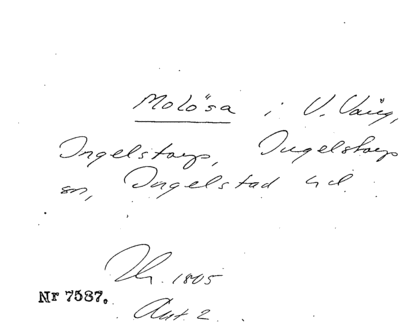 Molösa i V. Vång,
Ingelstorp, Ingelstorps
sn, Ingelstad hd.
Lh. 1805
Nr 7587.
Akt 2